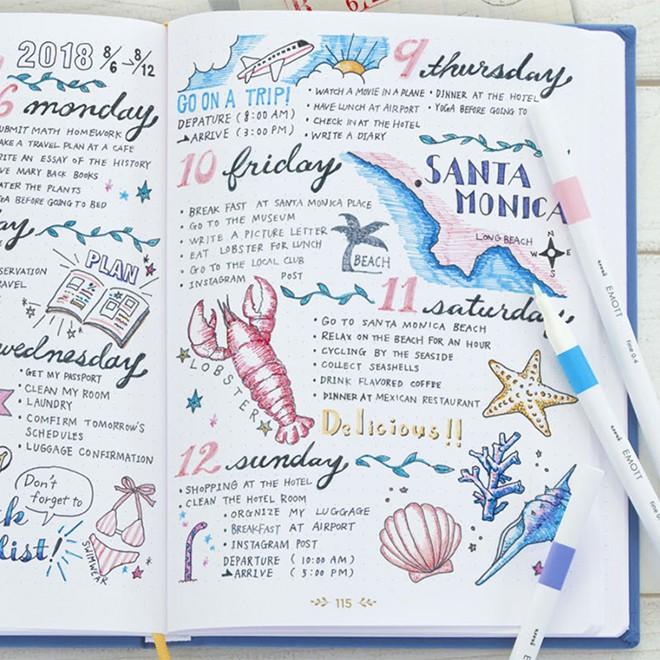 2018 8/6 → 8/12
6 monday
SUBMIT MATH HOMEWORK
MAKE A TRAVEL PLAN AT A CAFE
WRITE AN ESSAY OF THE HISTORY
MARY BACK BOOKS
WATER THE PLANTS
YOGA BEFORE GOING TO BED
PLAN
wednesday
• GET MY PASSPORT
• CLEAN MY ROOM
• LAUNDRY
• COMFIRM TOMORROW'S
SCHEDULES
• LUGGAGE CONFIRMATION
Don't
forget to
list!
SWIMWEAR
9 thursday
GO ON A TRIP!
DEPATURE (8:00 AM)
ARRIVE (3:00 PM)
• WATCH A MOVIE IN A PLANE
• HAVE LUNCH AT AIRPORT
• CHECK IN AT THE HOTEL
• WRITE A DIARY
• DINNER AT THE HOTEL
• YOGA BEFORE GOING TO
10 friday
• BREAK FAST AT SANTA MONICA PLACE
• GO TO THE MUSEUM
• WRITE A PICTURE LETTER
• EAT LOBSTER FOR LUNCH
• GO TO THE LOCAL CLUB
• INSTAGRAM POST
BEACH
SANTA
MONICA
LONG BEACH
N
W E
S
11 saturday
• GO TO SANTA MONICA BEACH
• RELAX ON THE BEACH FOR AN HOUR
• CYCLING BY THE SEASIDE
• COLLECT SEASHELLS
• DRINK FLAVORED COFFEE
• DINNER AT MEXICAN RESTAURANT
LOBSTER
Delicious!!
12 sunday
• SHOPPING AT THE HOTEL
• CLEAN THE HOTEL ROOM
• ORGNIZE MY LUGGAGE
• BREAKFAST AT AIRPORT
• INSTAGRAM POST
DEPARTURE (10:00 AM)
ARRIVE (5:00 PM)
115
uni EMOTT fine 0.4
uni EMOTT
uni EMOTT